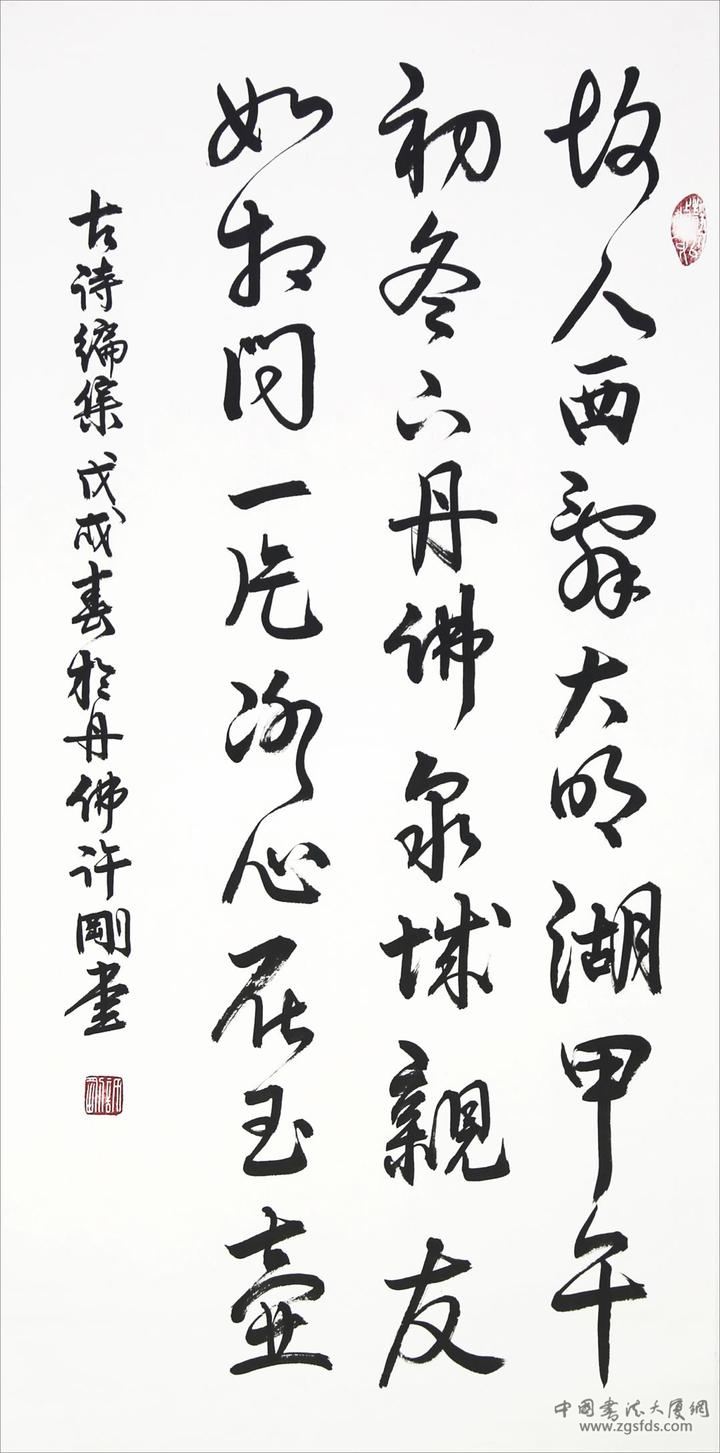 故人西辞大明湖甲午
初冬下丹佛泉城親友
如相问一片冰心在玉壶
古诗编集戊戌春於丹佛许剛书
中國書法大厦網
www.zgsfds.com